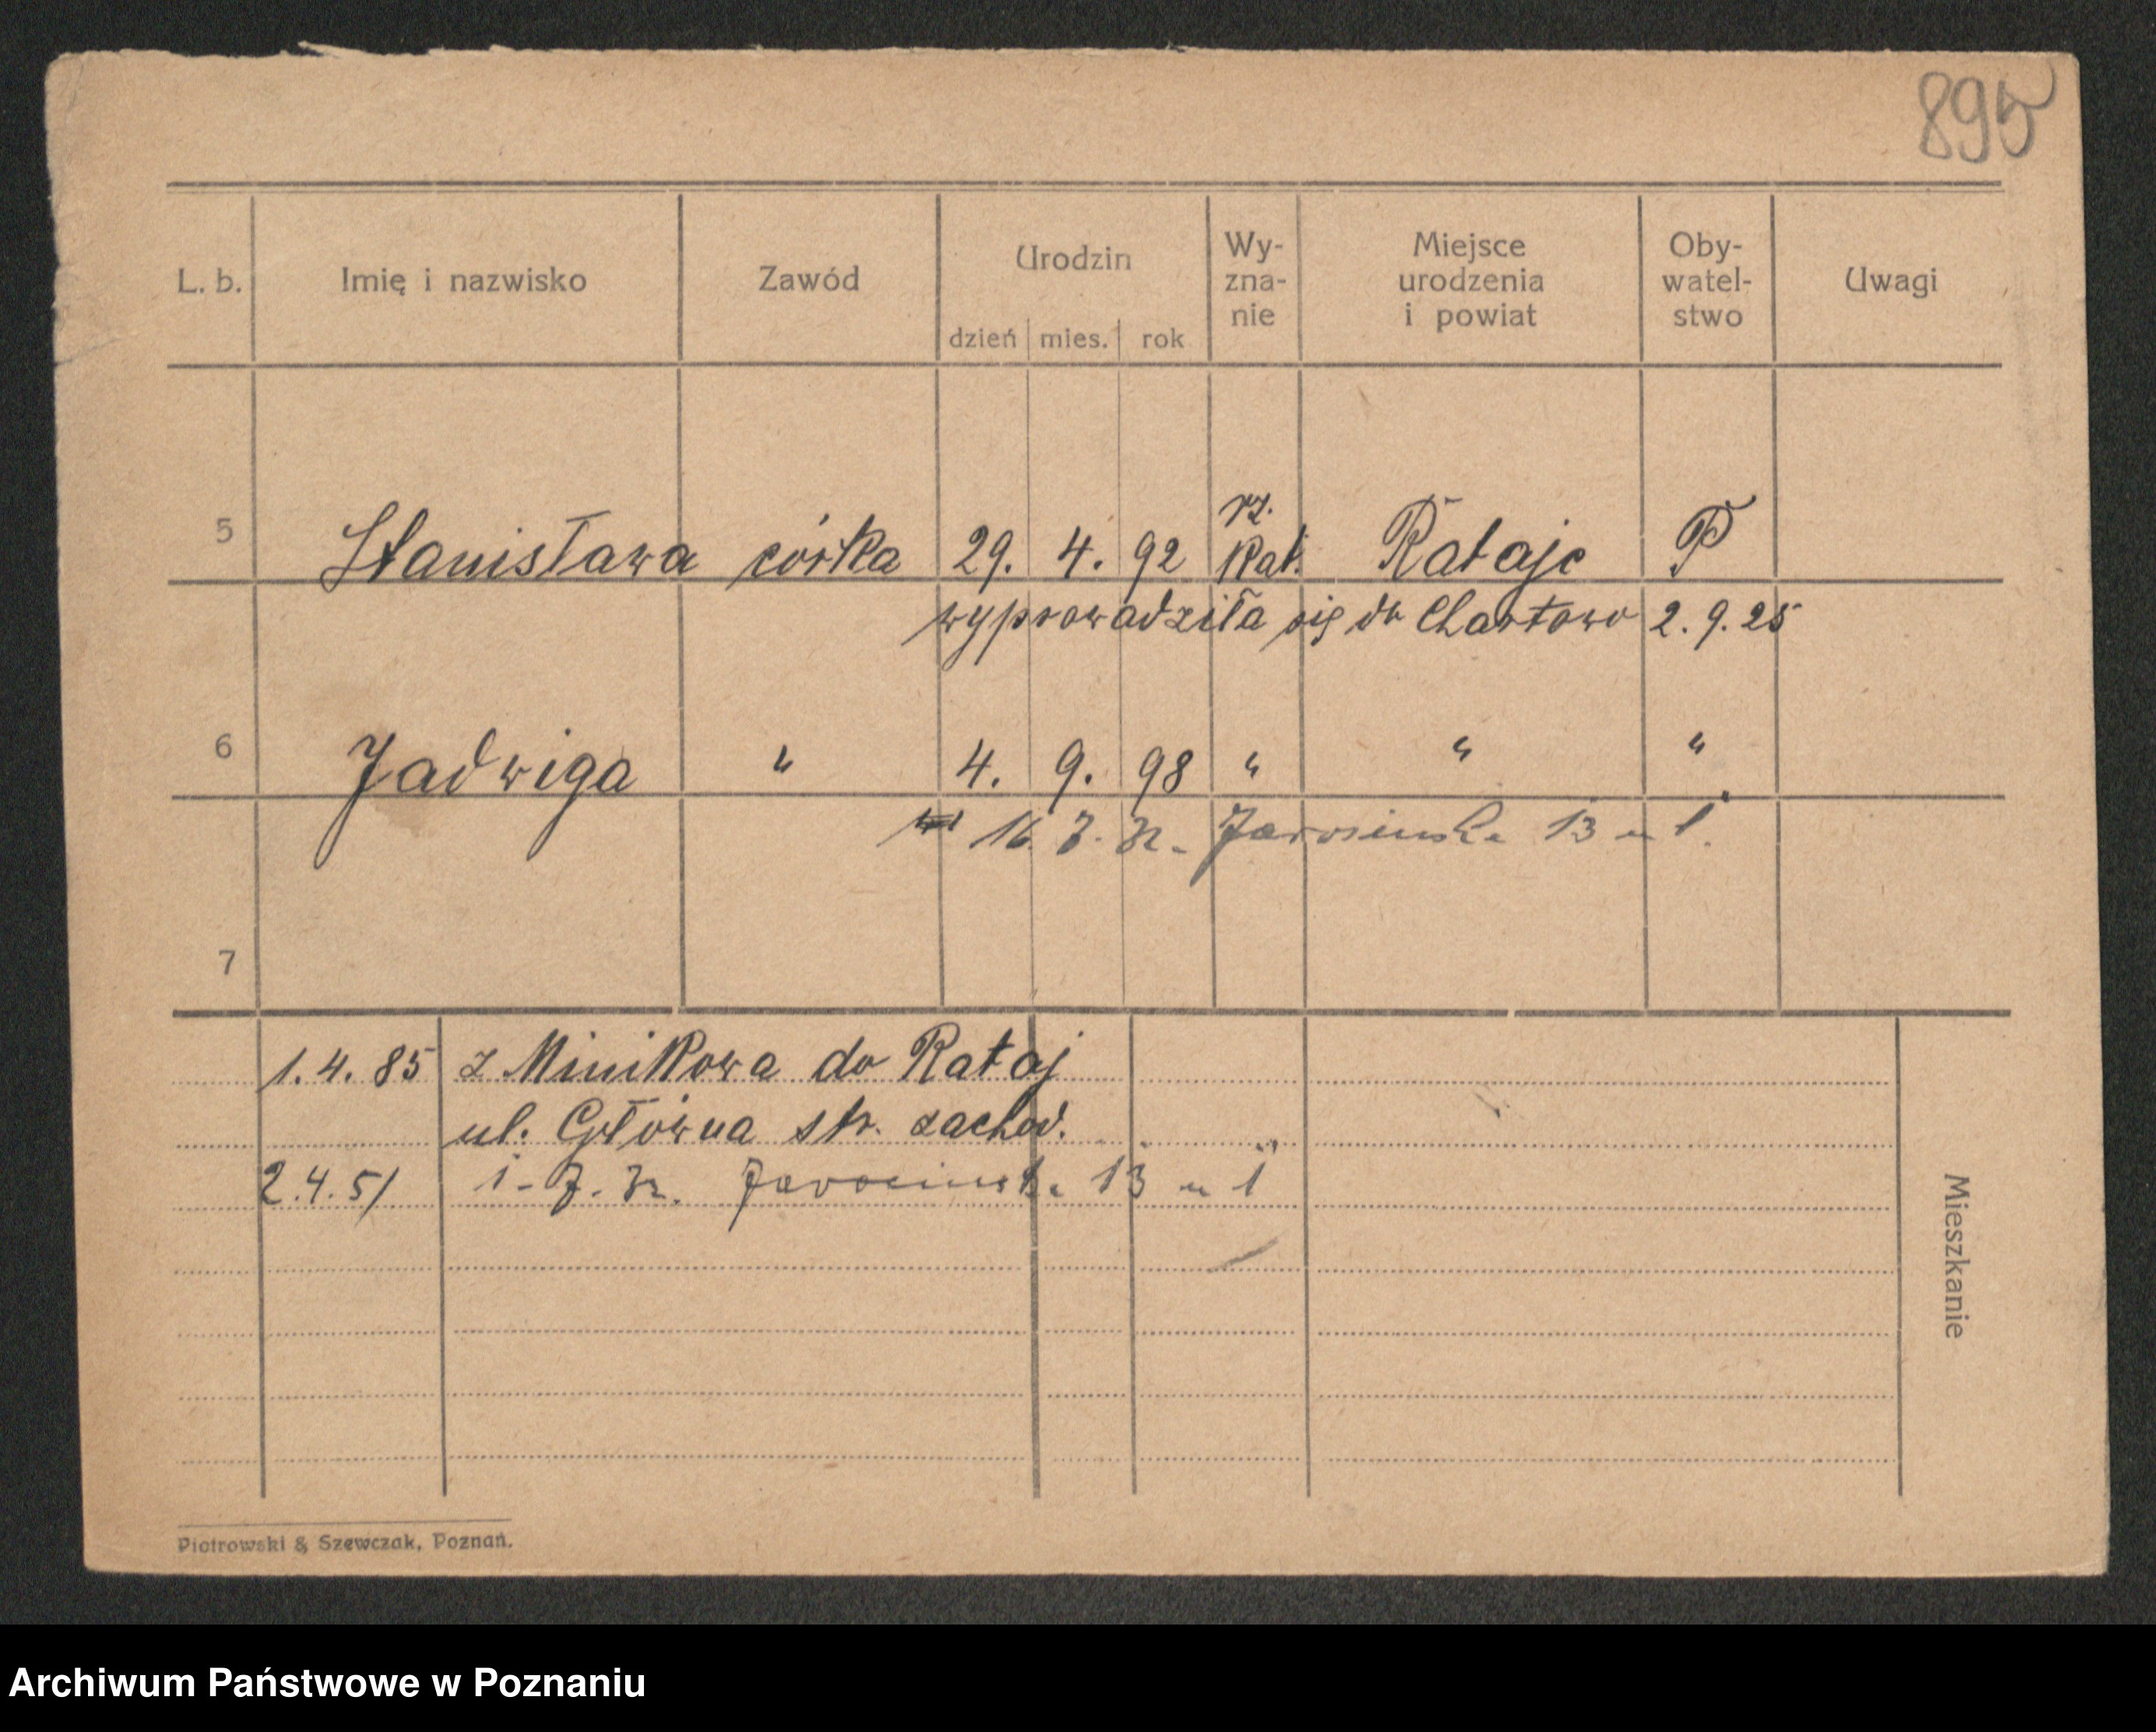 895
L. b. Imię i nazwisko Zawód Urodzin dzień mies. rok Wy-zna-nie Miejsce urodzenia i powiat Oby-watel-stwo Uwagi
5 Stanisława córka 29. 4. 92 rz. Kat. Rataje P
wyprowadziła się do Chartowo 2.9.25
6 Jadwiga " 4. 9. 98 " " "
16. 7. 32. 13 m 1.
7
1.4.85 z Minikowa do Rataj
ul. Główna str. zachod.
2.4.51 1-7. 32. 13 m 1
Mieszkanie
Piotrowski & Szewczak, Poznań.
Archiwum Państwowe w Poznaniu